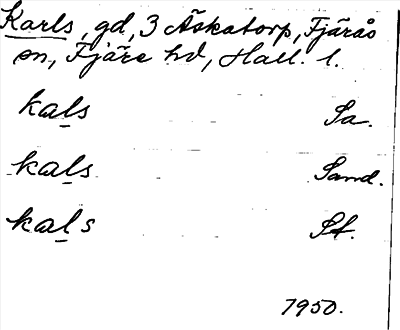 Karls, gd, 3 Äskatorp, Fjärås
sn, Fjäre hd, Hall. l.
kal̠s Sa.
kal̠s Sand.
kal̠s St.
1950.